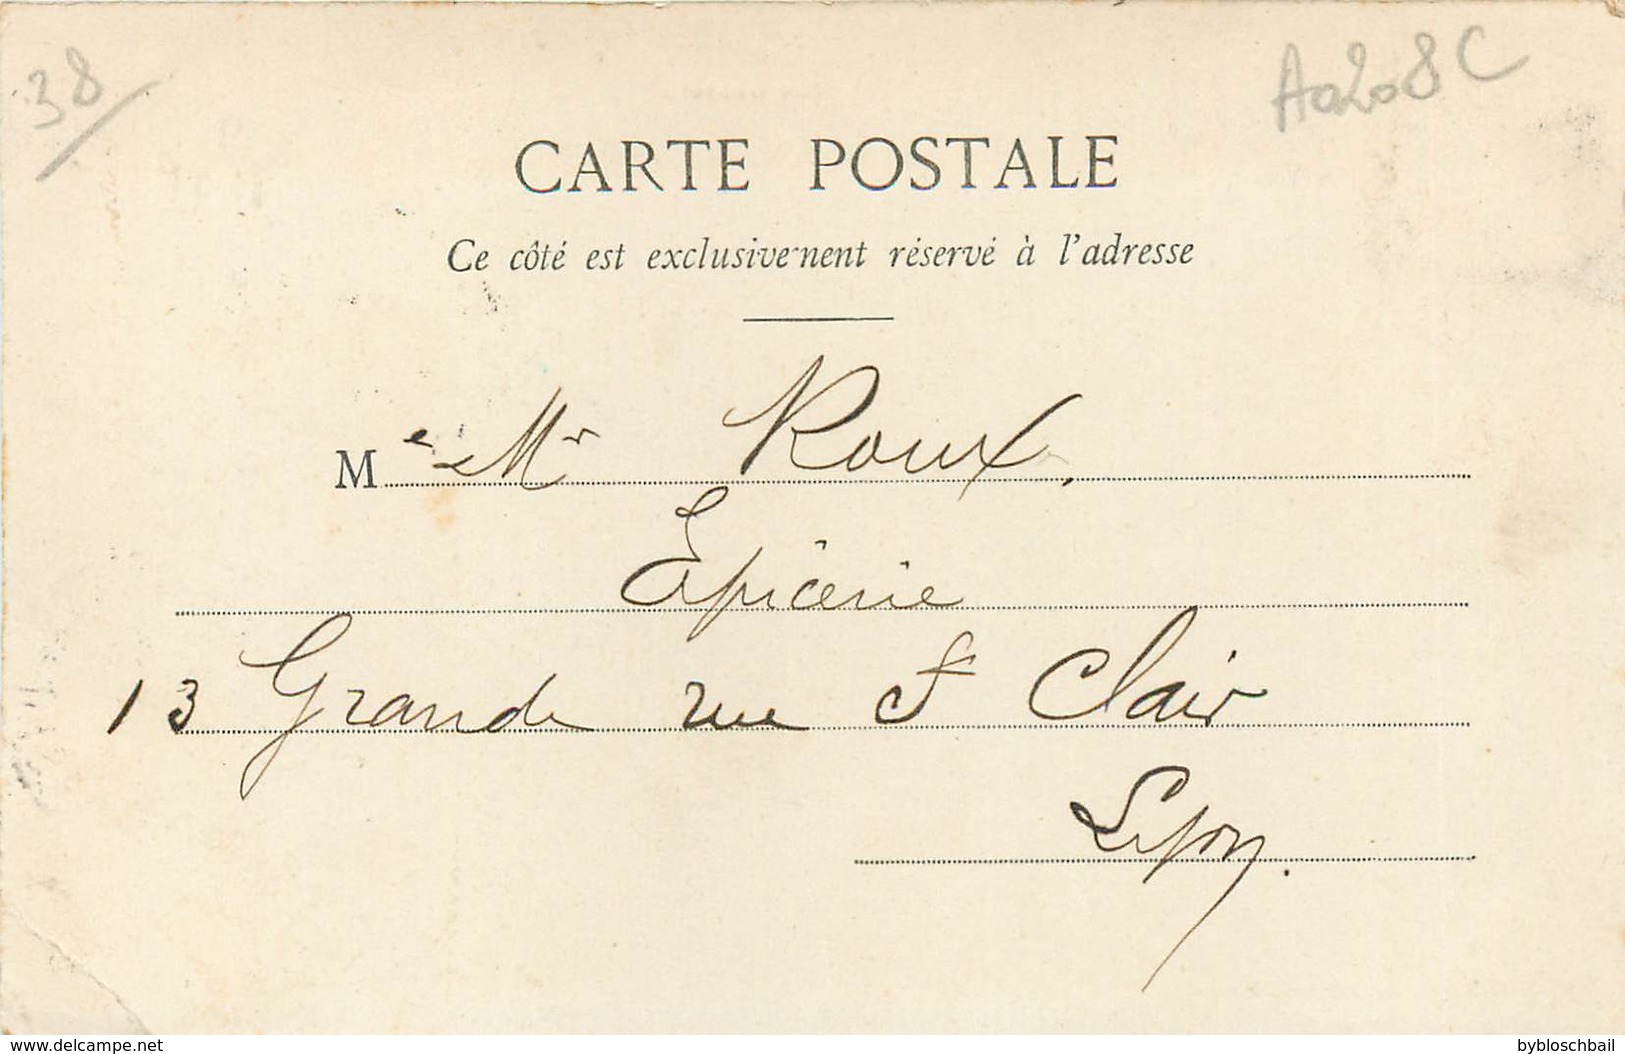 38
A0208C
CARTE POSTALE
Ce côté est exclusivement réservé à l'adresse
Me Mr Roux.
Epicerie
13 Grande rue St Clair
Lyon.
www.delcampe.net
bybloschbail